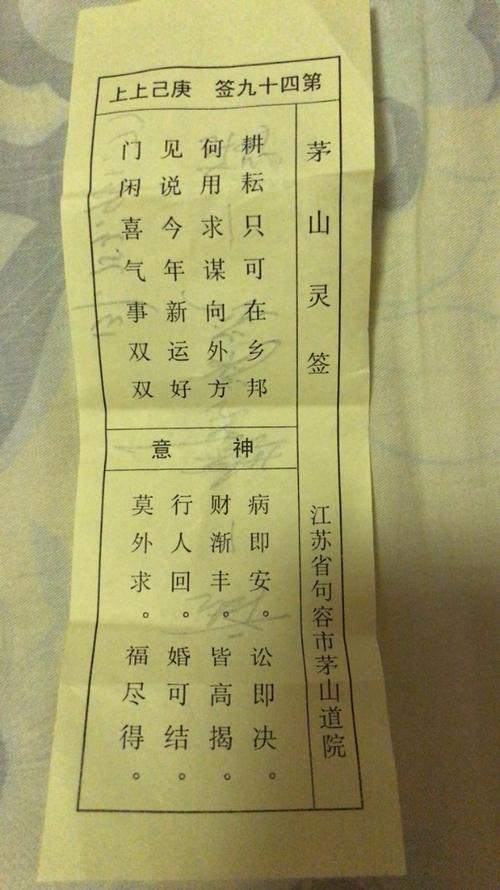 第四十九签 庚己上上
茅山灵签 江苏省句容市茅山道院
耕耘只可在乡邦
何用求谋向外方
见说今年新运好
门闲喜气事双双
神意
病即安。讼即决。
财渐丰。皆高揭。
行人回。婚可结。
莫外求。福尽得。